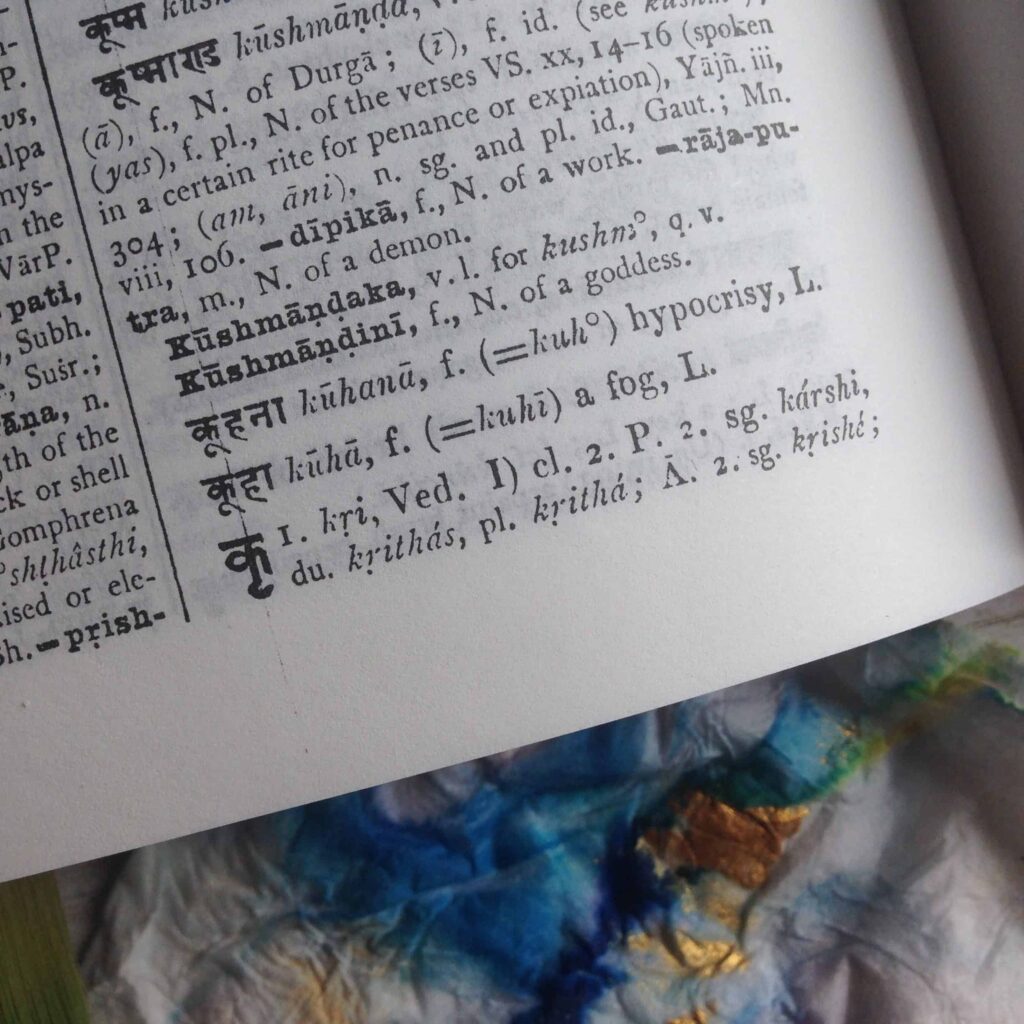 P.
alpa
n the
VārP.
pati,
, Subh.
, Suśr.;
āṇa, n.
th of the
ck or shell
Gomphrena
°shṭhâsthi,
ised or ele-
Sh. — pṛish-
कूष्म
कूष्माण्ड kūshmāṇḍa,
(ā), f., N. of Durgā; (ī), f. id. (see
(yas), f. pl., N. of the verses VS. xx, 14-16 (spoken
in a certain rite for penance or expiation), Yājñ. iii,
304; (am, āni), n. sg. and pl. id., Gaut.; Mn.
viii, 106. — dīpikā, f., N. of a work. — rāja-pu-
tra, m., N. of a demon.
Kūshmāṇḍaka, v. l. for kushm°, q. v.
Kūshmāṇḍinī, f., N. of a goddess.
कूहना kūhanā, f. (=kuh°) hypocrisy, L.
कूहा kūhā, f. (=kuhī) a fog, L.
कृ 1. kṛi, Ved. I) cl. 2. P. 2. sg. kárshi,
du. kṛithás, pl. kṛithá; Ā. 2. sg. kṛishé;